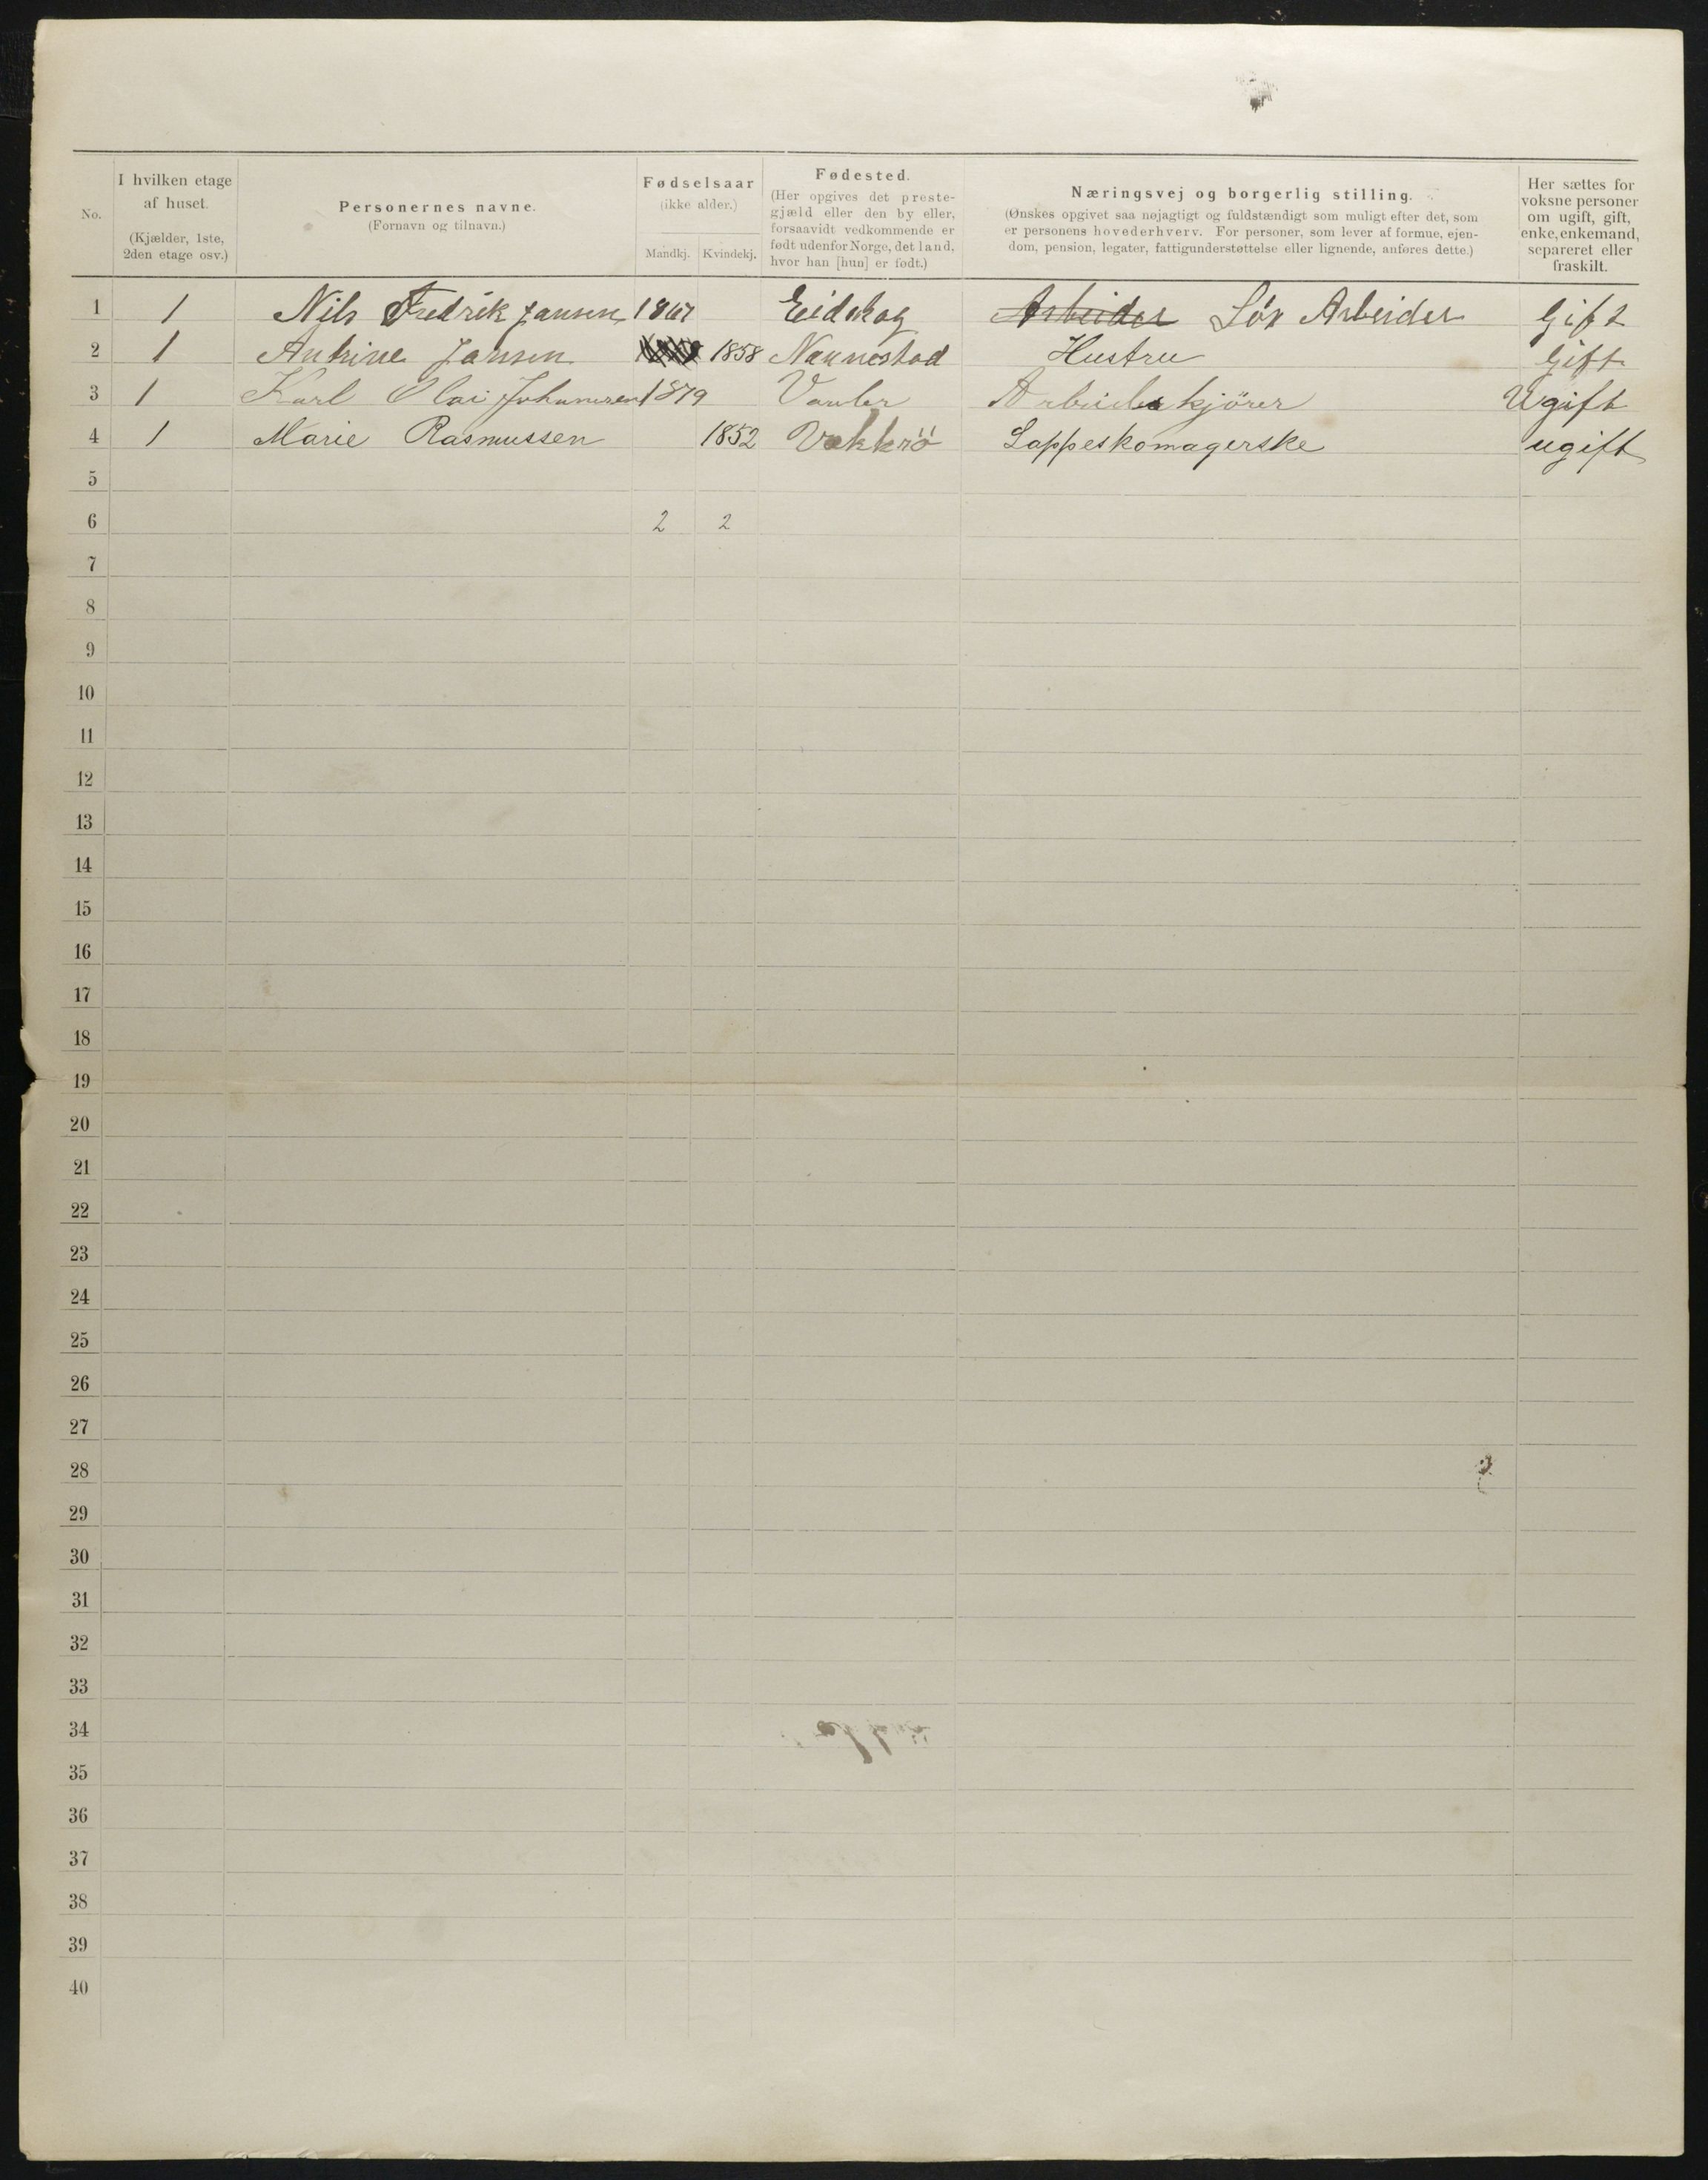 No.
I hvilken etage af huset. (Kjælder, 1ste, 2den etage osv.)
Personernes navne. (Fornavn og tilnavn.)
Fødselsaar (ikke alder.)
Mandkj. Kvindekj.
Fødested. (Her opgives det prestegjæld eller den by eller, forsaavidt vedkommende er født udenfor Norge, det land, hvor han [hun] er født.)
Næringsvej og borgerlig stilling. (Ønskes opgivet saa nøjagtigt og fuldstændigt som muligt efter det, som er personens hovederhverv. For personer, som lever af formue, ejendom, pension, legater, fattigunderstøttelse eller lignende, anføres dette.)
Her sættes for voksne personer om ugift, gift, enke, enkemand, separeret eller fraskilt.
1 1 Nils Fredrik Jansen 1867 Eidskog Arbeider Løs Arbeider Gift
2 1 Antrine Jansen 1858 Nannestad Hustru Gift
3 1 Karl Olai Johannesen 1879 Arbeidskjörer Ugift
4 1 Marie Rasmussen 1852 Vækkrö Lappeskomagerske ugift
5
6 2 2
7
8
9
10
11
12
13
14
15
16
17
18
19
20
21
22
23
24
25
26
27
28
29
30
31
32
33
34
35
36
37
38
39
40